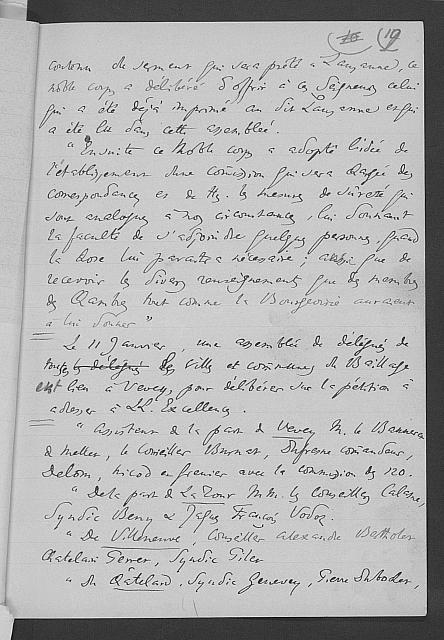 19
contenu du serment qui sera prêté à Lausanne, ce
noble corps a délibéré d'offrir à ces Seigneurs celui
qui a été déjà imprimé au dit Lausanne et qui
a été lu dans cette assemblée.
" Ensuite ce Noble corps a adopté l'idée de
l'établissement d'une comission qui sera chargée des
correspondances et de les mesures de sûreté qui
sont analogues à nos circonstances, lui donnant
la faculté de s'adjoindre quelques personnes, quand
la chose lui paraîtra nécessaire; ainsi que de
recevoir les divers renseignements que des membres
des Chambres tout comme la Bourgeoisie auraient
à lui donner "
Le 11 Janvier, une assemblée de délégués de
toutes les délégués les villes et communes du Baillage
eut lieu à Vevey, pour délibérer sur la pétition à
adresser à LL. Excellences.
" Assistent de la part de Vevey M. le Banneret
de Mellet, le Conseiller Burnat, Dufresne comandeur,
Delom, Nicod et Grenier avec la commission des 120.
" De la part de La Tour MM. les Conseillers
Syndic Benj & Jaques François Vodoz.
" De Villeneuve, Conseiller Alexandre Bertholet
Chatelain Perret, Syndic
" Du Châtelard, Syndic Genevey, Pierre Dubochet,